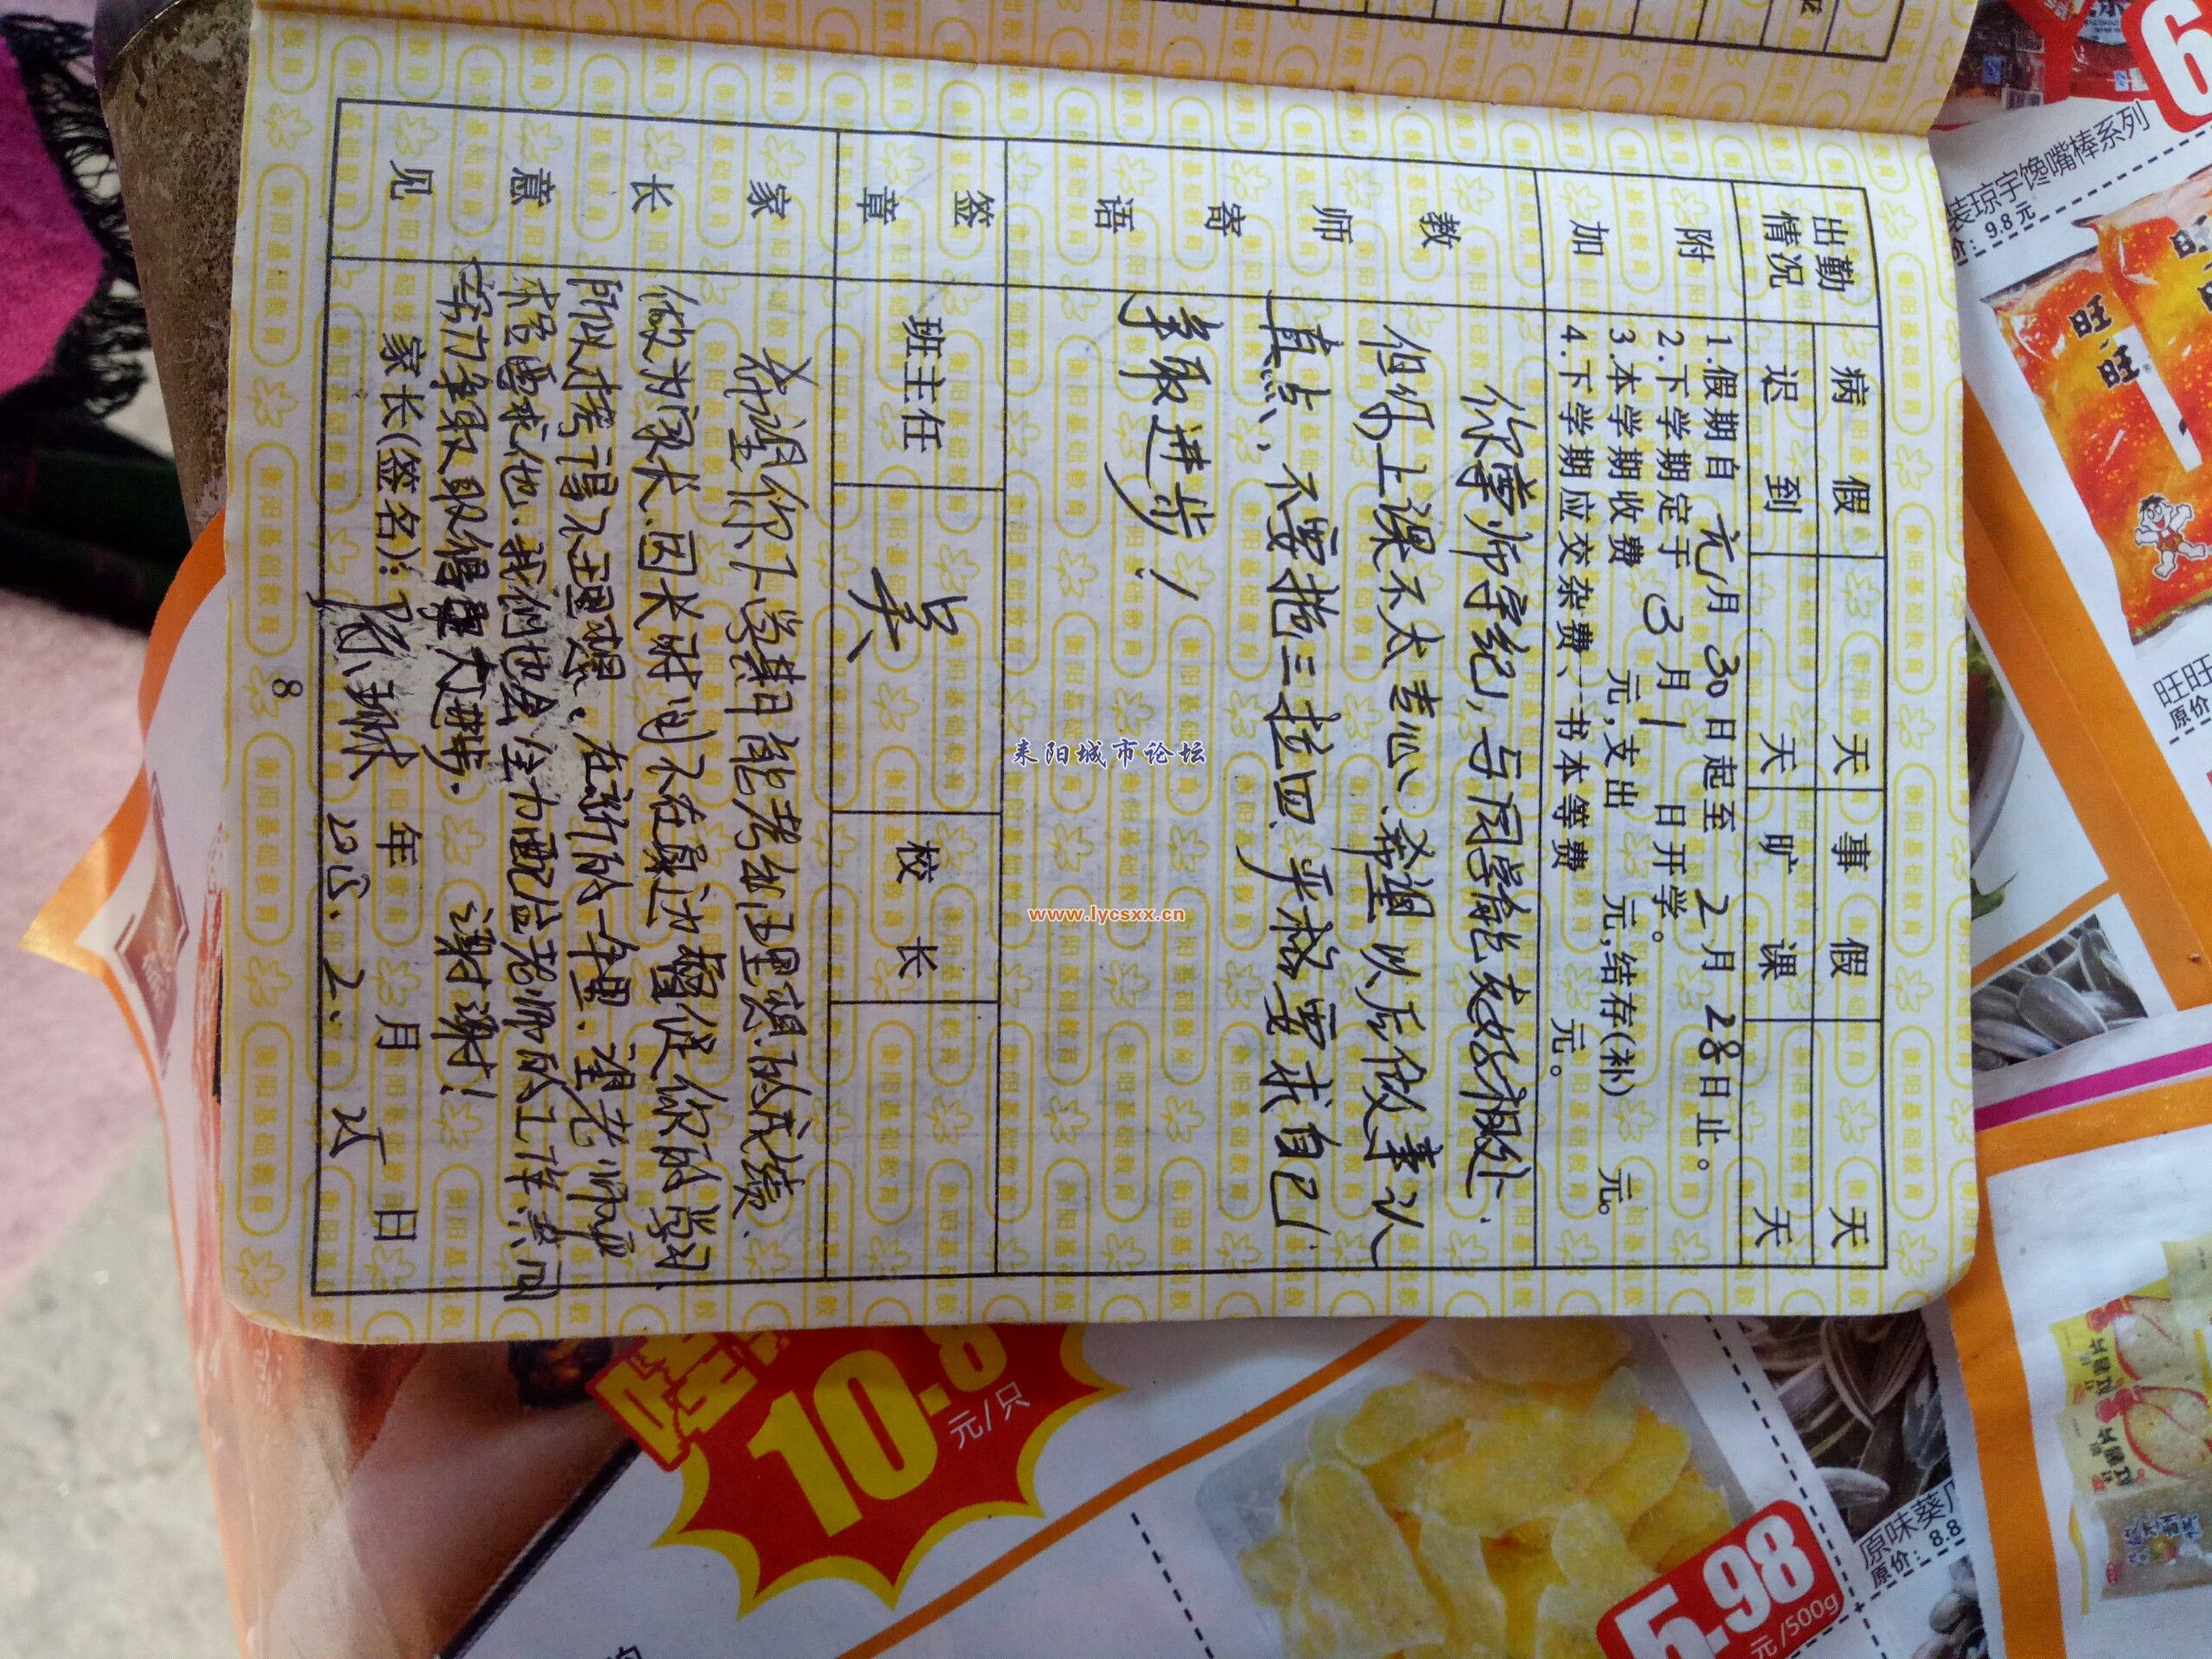 出勤情况
病假 天 事假 天
迟到 天 旷课 天
附加
1.假期自 元月 30日起至 2月 28日止。
2.下学期定于 3月 1日开学。
3.本学期收费 元,支出 元,结存(补) 元。
4.下学期应交杂费、书本等费 元。
教师寄语
你尊师守纪,与同学能友好相处.
但你上课不太专心.希望以后做事认
真点,不要拖三拉四.严格要求自己.
争取进步!
签章
班主任 吴 校长
家长意见
希望你下学期能考出理想的成绩.
做为家长.因长时间不在身边督促你的学习.
所以才考得不理想、在新的一年里.望老师严
求. 我们也会全力配合老师的工作.
争取取得更大进步. 谢谢!
家长(签名): 年 月 日
2. 25
8
耒阳城市论坛
www.lycsxx.cn
6
装琼宇馋嘴棒系列
价: 9.8元
旺旺
旺旺
原价
10.8
元/只
5.98
元/500g
原味葵
原价: 8.8